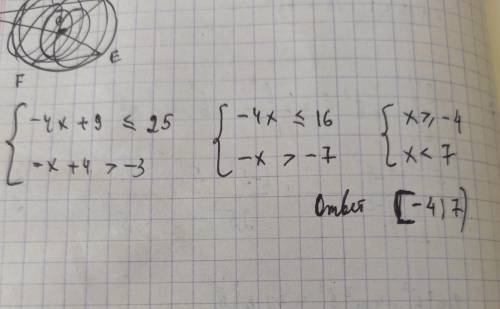 E
F
-4x+9 ≤ 25
-x+4 > -3
-4x ≤ 16
-x > -7
x ≥ -4
x < 7
Ответ [-4; 7)